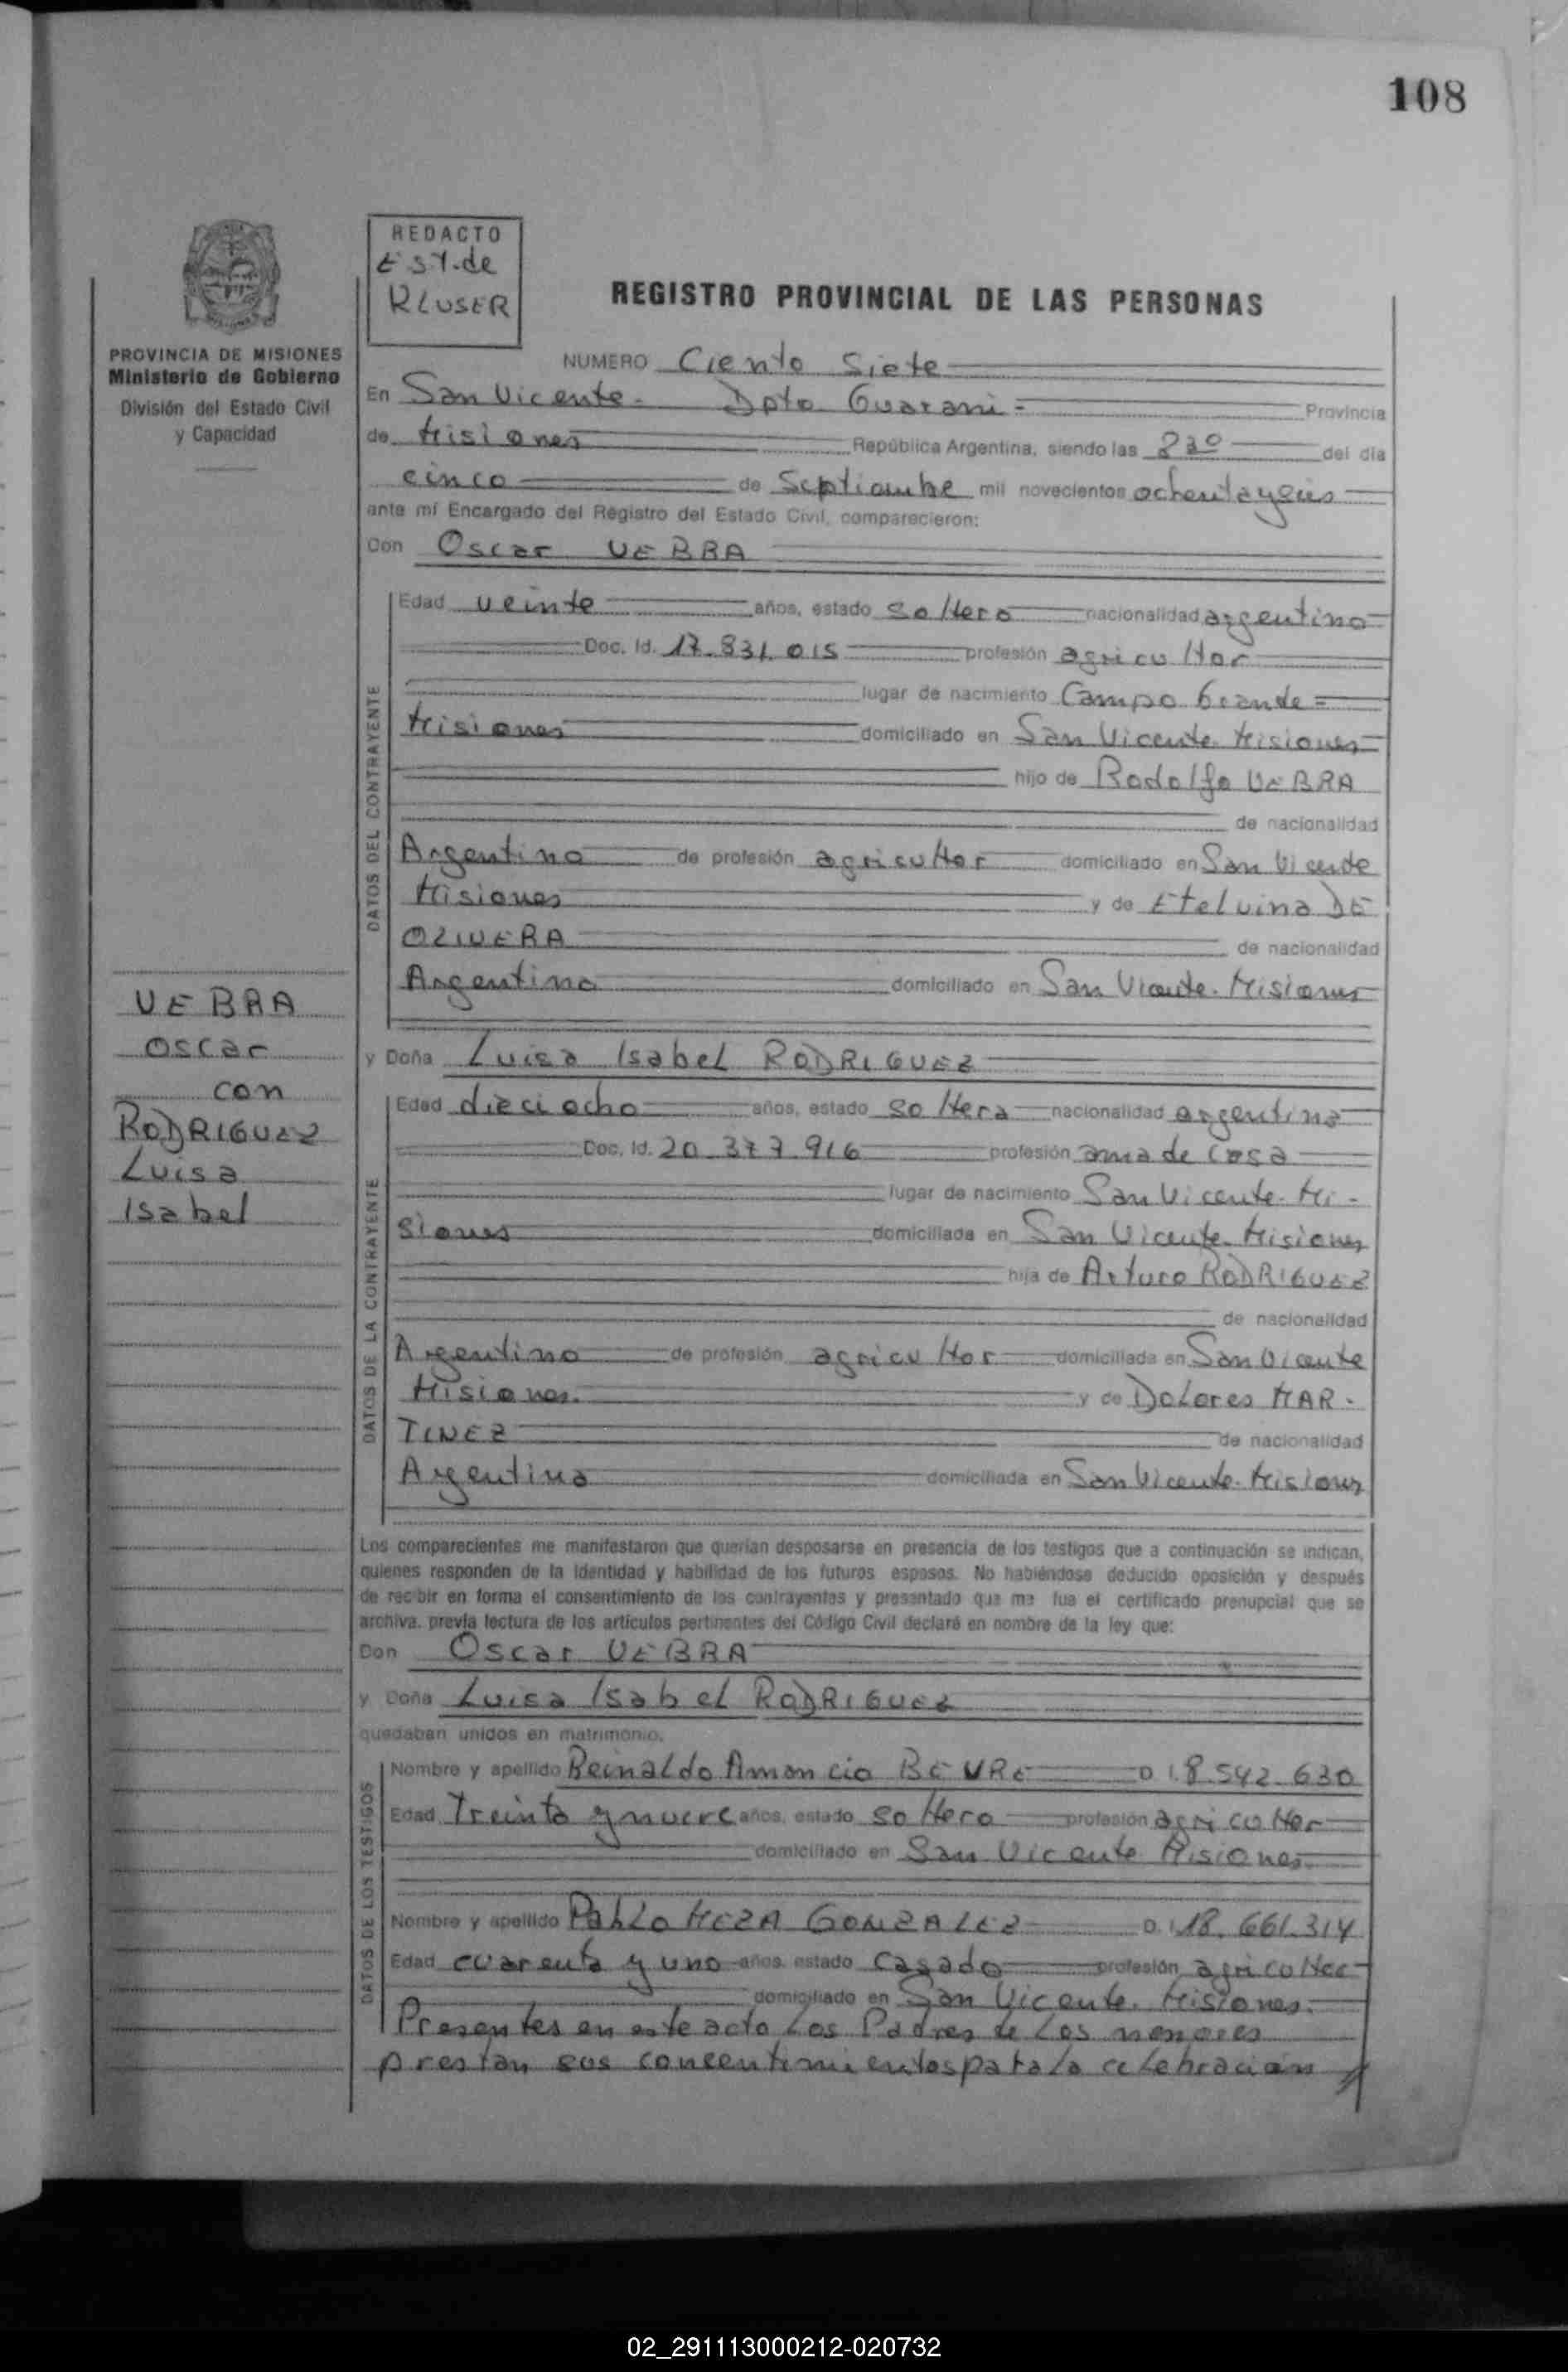 108
REDACTO
EST. de
KLUSER
REGISTRO PROVINCIAL DE LAS PERSONAS
PROVINCIA DE MISIONES
Ministerio de Gobierno
División del Estado Civil
y Capacidad
NUMERO Ciento Siete
En San Vicente - Dpto Guarani - Provincia
de Misiones República Argentina, siendo las 8 30 del día
cinco de Septiembre mil novecientos ochentayseis
ante mí Encargado del Registro del Estado Civil, comparecieron:
Don Oscar VEBRA
DATOS DEL CONTRAYENTE
Edad veinte años, estado soltero nacionalidad argentino
Doc. Id. 17.831.015 profesión agricultor
lugar de nacimiento Campo Grande -
Misiones domiciliado en San Vicente Misiones
hijo de Rodolfo VEBRA
de nacionalidad
Argentino de profesión agricultor domiciliado en San Vicente
Misiones y de Etelvina DE
OLIVERA de nacionalidad
Argentina domiciliado en San Vicente. Misiones
VEBRA
Oscar
con
RODRIGUEZ
Luisa
Isabel
y Doña Luisa Isabel RODRIGUEZ
DATOS DE LA CONTRAYENTE
Edad dieciocho años, estado soltera nacionalidad argentina
Doc. Id. 20.377.916 profesión ama de casa
lugar de nacimiento San Vicente. Mi-
siones domiciliada en San Vicente. Misiones
hija de Arturo RODRIGUEZ
de nacionalidad
Argentino de profesión agricultor domiciliada en San Vicente
Misiones. y de Dolores MAR-
TINEZ de nacionalidad
Argentina domiciliada en San Vicente. Misiones
Los comparecientes me manifestaron que querían desposarse en presencia de los testigos que a continuación se indican,
quienes responden de la identidad y habilidad de los futuros esposos. No habiéndose deducido oposición y después
de recibir en forma el consentimiento de los contrayentes y presentado que me fue el certificado prenupcial que se
archiva, previa lectura de los artículos pertinentes del Código Civil declaré en nombre de la ley que:
Don Oscar VEBRA
y Doña Luisa Isabel RODRIGUEZ
quedaban unidos en matrimonio.
DATOS DE LOS TESTIGOS
Nombre y apellido Reinaldo Amancio D I. 8.542.630
Edad Treinta y nueve años, estado soltero profesión agricultor
domiciliado en San Vicente Misiones.
Nombre y apellido Pablo MEZA GONZALEZ D. I. 18.661.314
Edad cuarenta y uno años, estado casado profesión agricultor
domiciliado en San Vicente. Misiones.
Presentes en este acto los Padres de los menores
prestan sus concentimientos para la celebracion
02_291113000212-020732